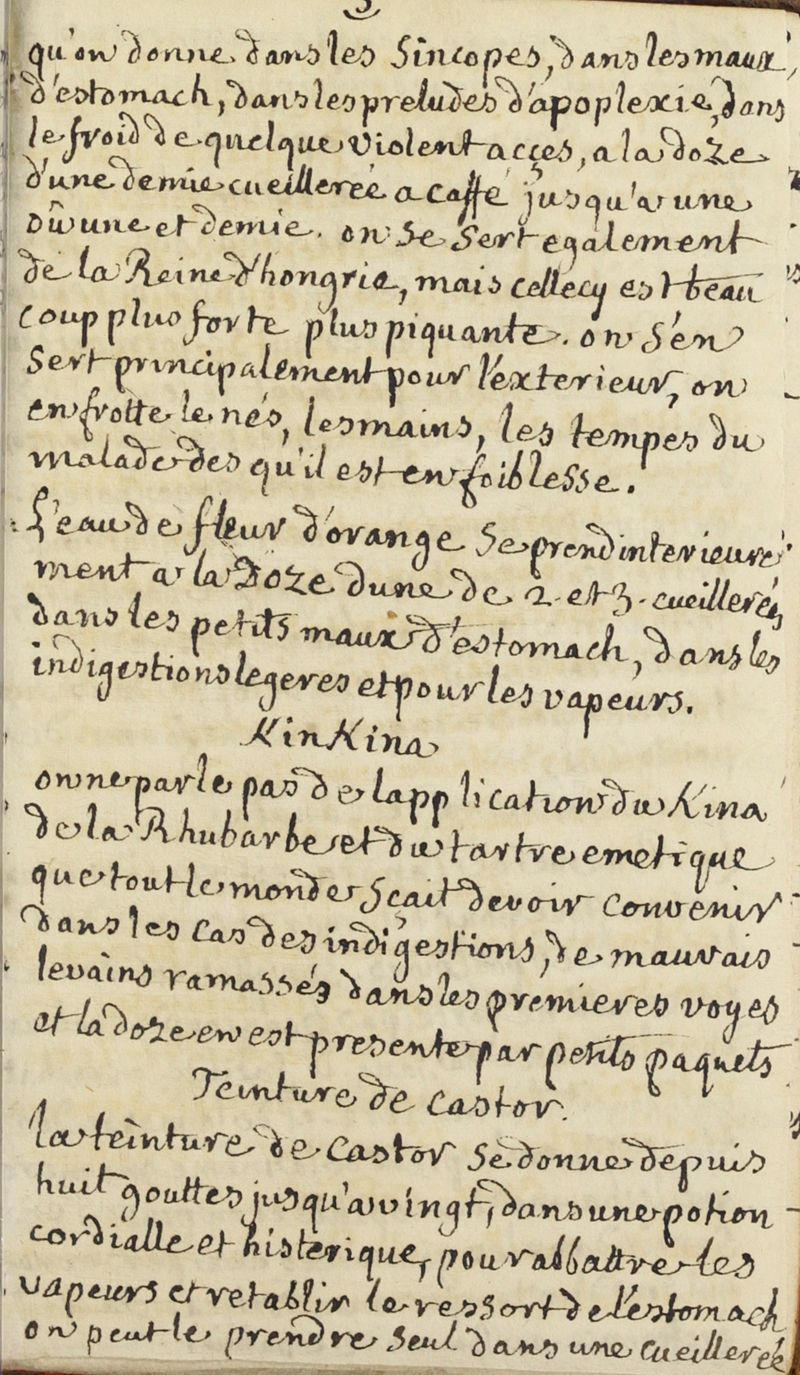 3
qu'on donne dans les sincopes, dans les maux
d'estomach, dans les preludes d'apoplexie, dans
le froid de quelque violent acçes, a la doze
d'une demie cueillereé a caffé jusqu'a une
oû une et demie. on se sert egalement
de la Reine d'hongrie, mais cellecy est beau
coup plus forte plus piquante. on s'en
sert principalement pour l'exterieur, on
en frotte le nés, les mains, les tempes du
malade des qu'il est en foiblesse.
L'eau de fleur d'orange se prend interieure
ment a la Doze dune de 2 et 3 cueillereés,
dans les petits maux d'estomach, dans les
indigestions legeres et pour les vapeurs.
KinKina
on ne parle pas de lapplication du Kina
de la Rhubarbe et du tartre emetique
que tout le monde sçait devoir convenir
dans les cas des indigestions, de mauvais
levains ramassés dans les premieres voyes
et la doze en est presente par petits paquets
Teinture de Castor.
la teinture de Castor se donne depuis
huit gouttes jusqu'a vingt, dans une potion
cordialle et histerique, pour abbattre les
vapeurs et retablir le ressort de l'estomach
on peut le prendre seul dans une cueillereé